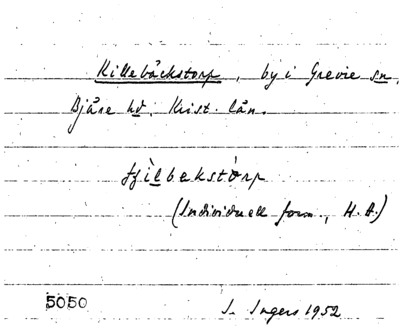 Killebäckstorp, by i Grevie sn,
Bjäre hd. Krist. län.
tjìlbekstòrp
(Individuell form, H. A.)
5050 I. Ingers 1952